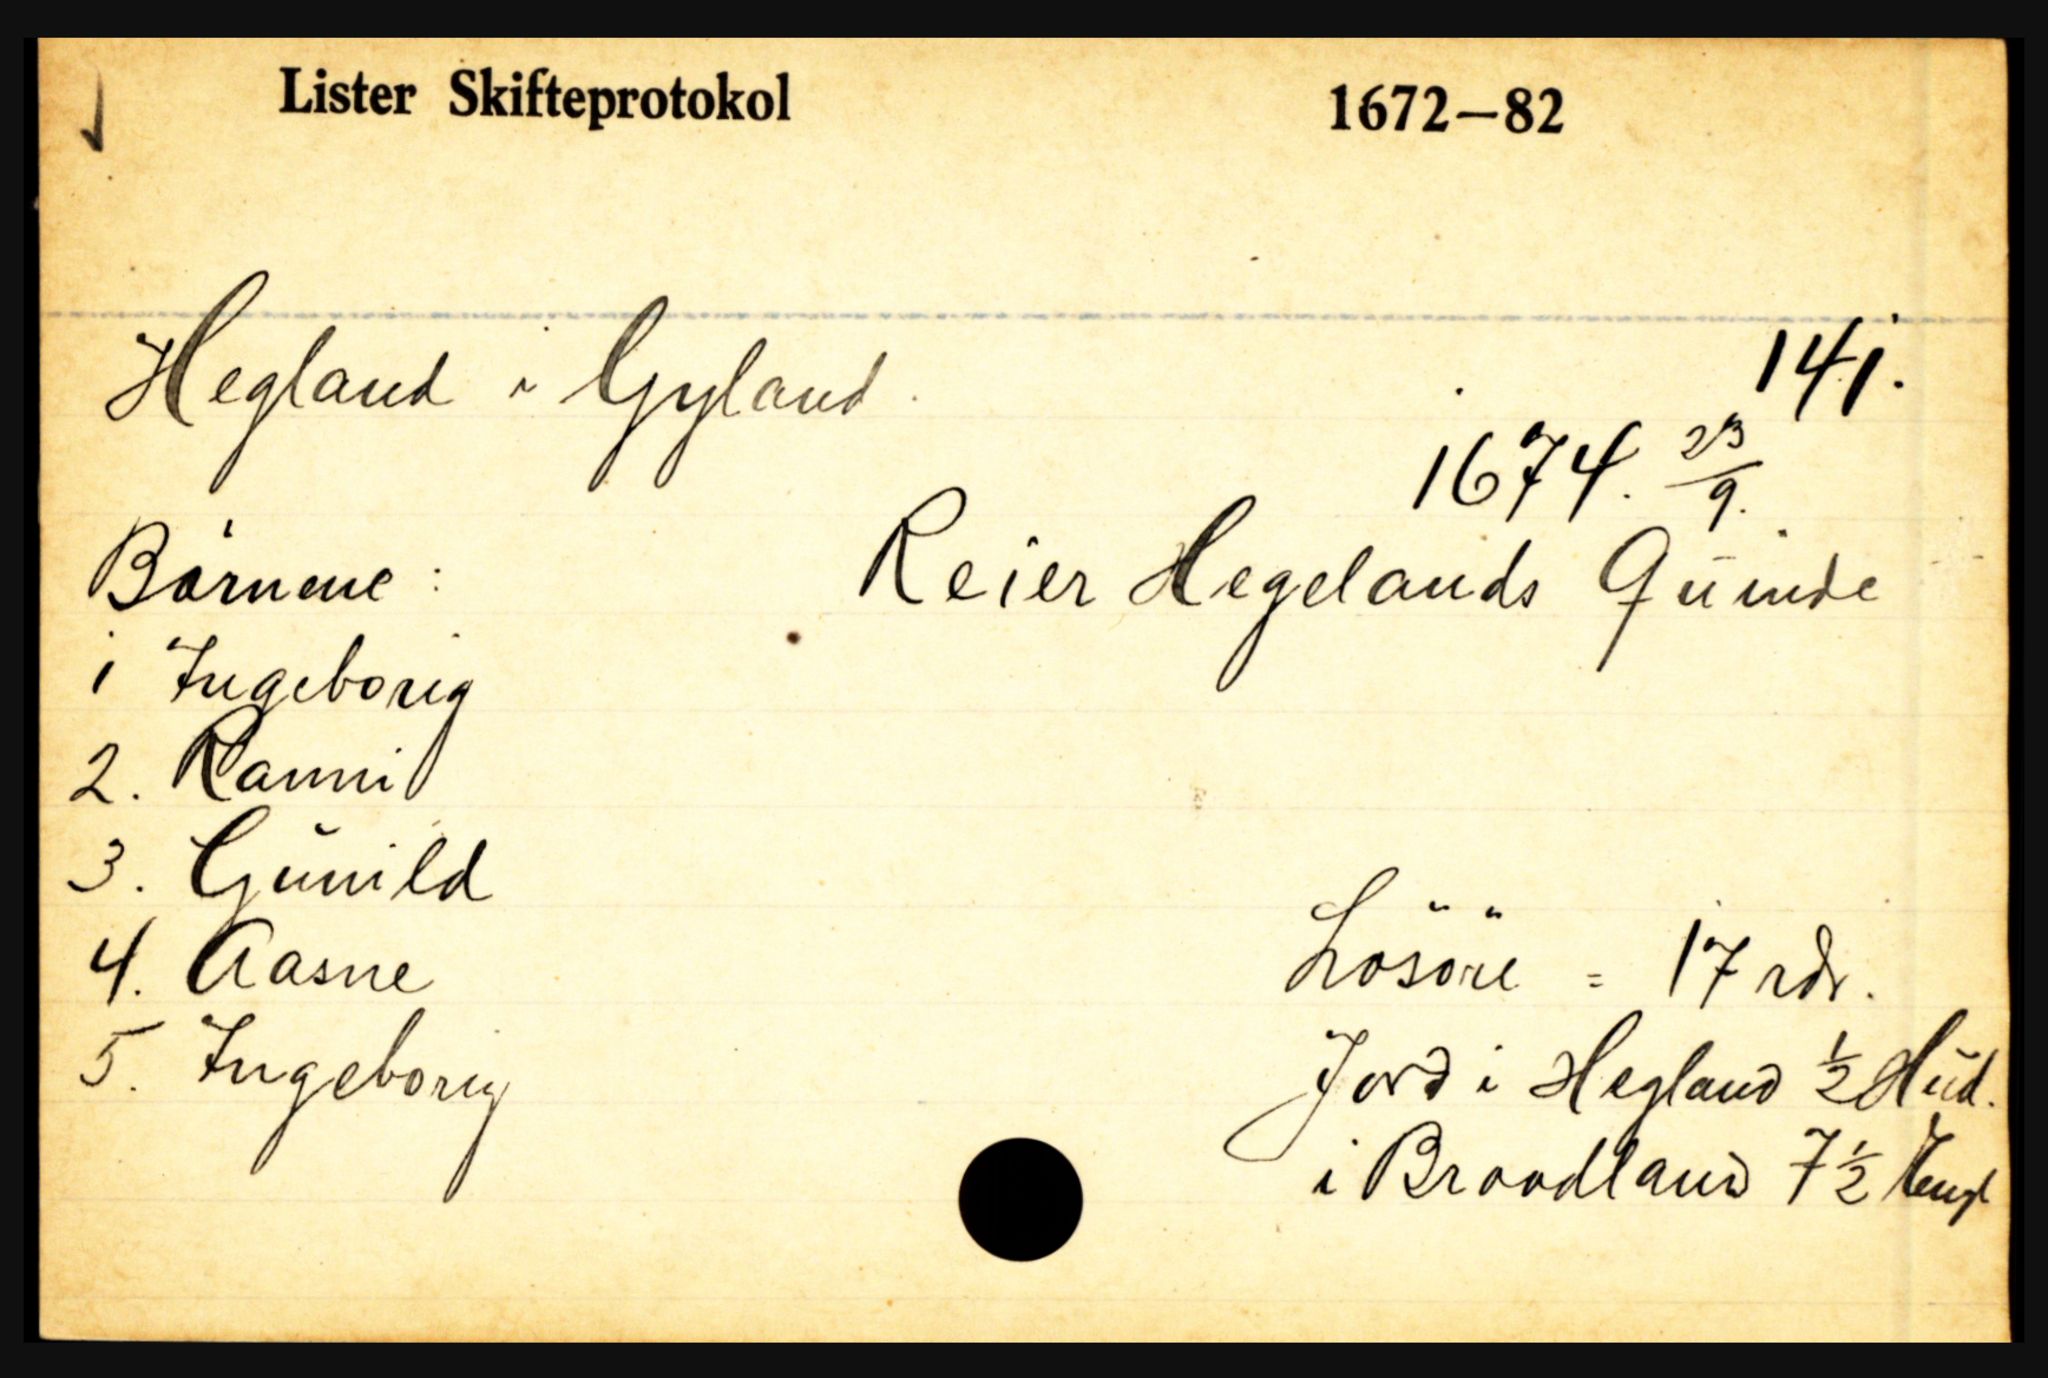 Lister Skifteprotokol 1672–82
Hegland i Gyland.
141.
1674. 23/9.
Börnene :
Reier Hegelands Quinde
1 Ingeborig
2. Ranni
3. Gunild
4. Aasne
5. Ingeborig
Lösöre = 17 rdr.
Jord i Hegland 1/2 Hud.
i Broodland 7 1/2 Engl